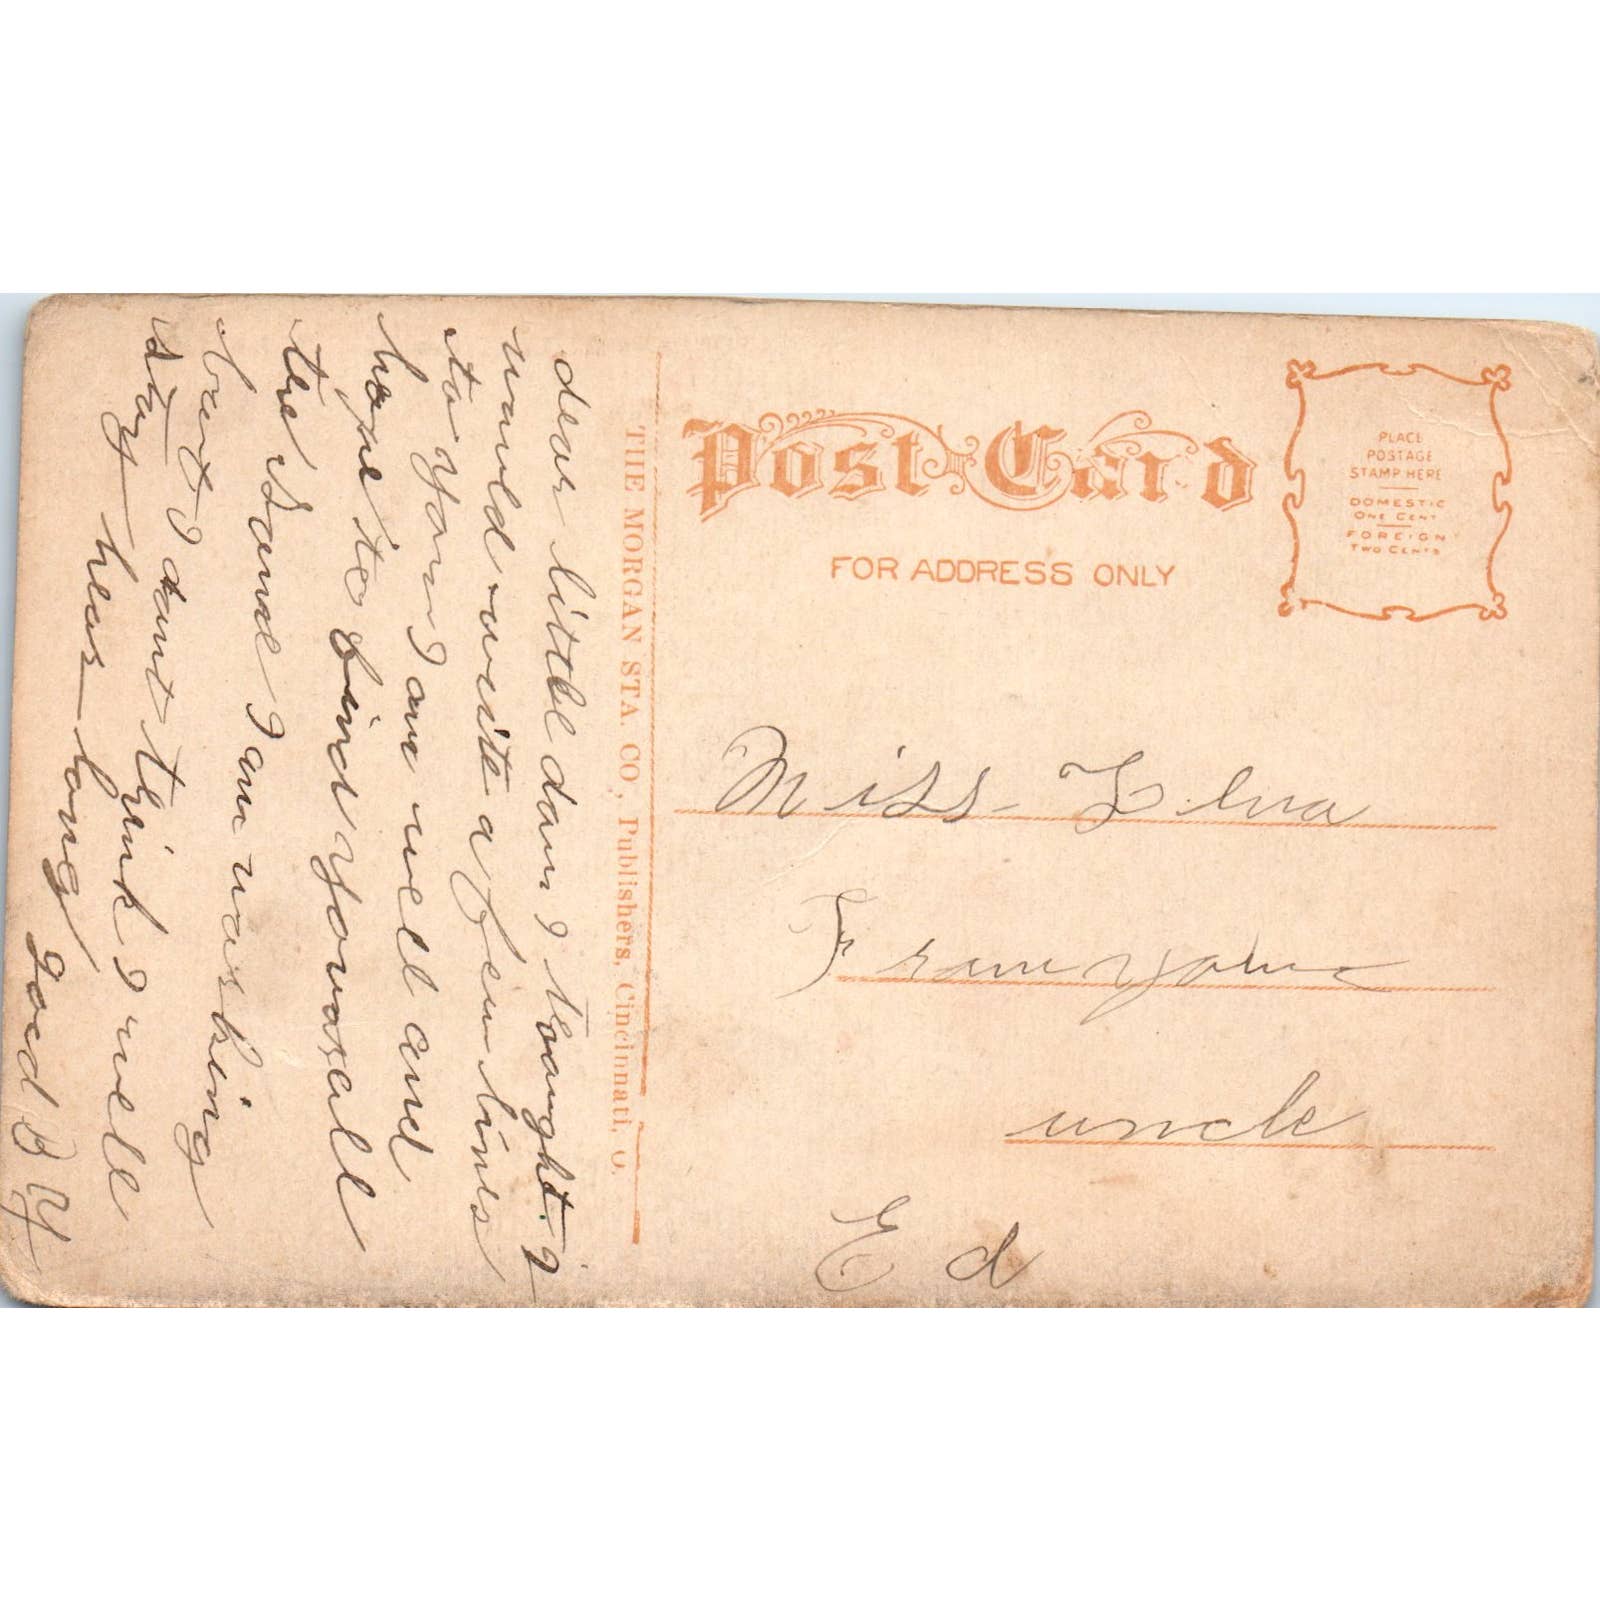 Post Card
FOR ADDRESS ONLY
PLACE
POSTAGE
STAMP HERE
DOMESTIC
ONE CENT
FOREIGN
TWO CENTS
THE MORGAN STA. CO., Publishers, Cincinnati, O.
dear little dom I thought I
would write a few lines
to you I am well and
hope to find yourself
the same I am working
but I dont think I will
stay hear long
good B Y
Miss
From your
uncle
Ed